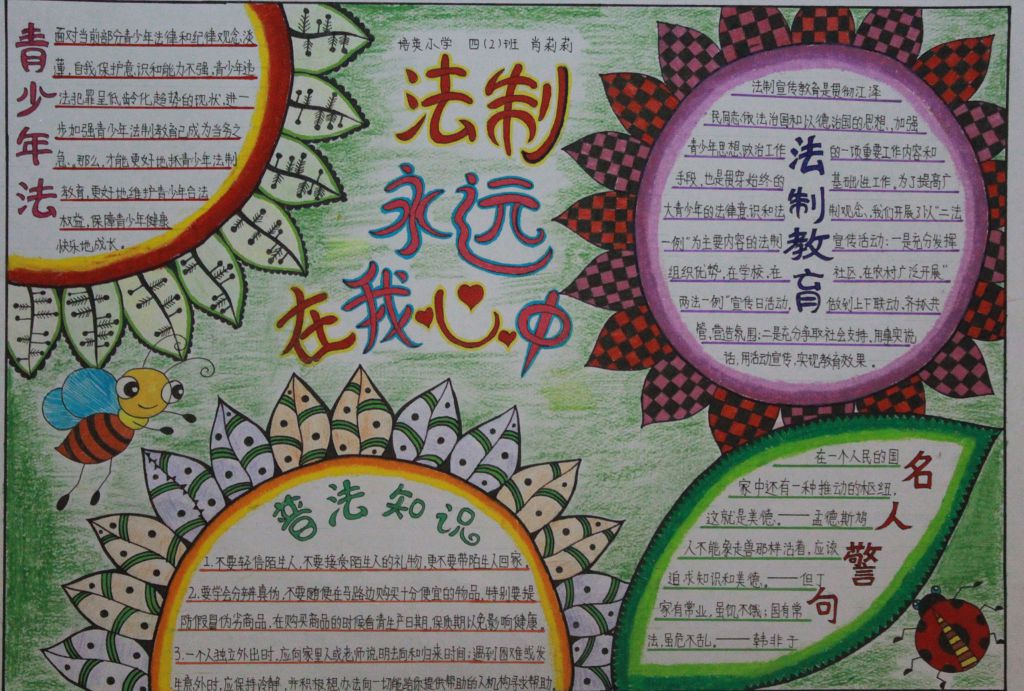 培英小学 四(2)班 肖莉莉
法制
永远
在我心中
青少年法
面对当前部分青少年法律和纪律观念淡
薄,自我保护意识和能力不强,青少年违
法犯罪呈低龄化趋势的现状,进一
步加强青少年法制教育已成为当务之
急。那么,才能更好地抓青少年法制
教育,更好地维护青少年合法
权益,保障青少年健康
快乐地成长。
法制教育
法制宣传教育是贯彻江泽
民同志依法治国和以德治国的思想,加强
青少年思想政治工作的一项重要工作内容和
手段,也是贯穿始终的基础性工作,为了提高广
大青少年的法律意识和法制观念,我们开展了以“二法
一例”为主要内容的法制宣传活动:一是充分发挥
组织优势,在学校、在社区、在农村广泛开展“
两法一例”宣传日活动,做到上下联动,齐抓共
管,营造氛围;二是充分争取社会支持,用事实说
话,用活动宣传,实现教育效果。
普法知识
1.不要轻信陌生人,不要接受陌生人的礼物,更不要带陌生人回家。
2.要学会分辨真伪,不要随便在马路边购买十分便宜的物品,特别要提
防假冒伪劣商品,在购买商品的时候看清生产日期,保质期以免影响健康。
3.一个人独立外出时,应向家里人或老师说明去向和归来时间;遇到困难或发
生意外时,应保持冷静,并积极想办法向一切能给你提供帮助的人机构寻求帮助。
名人警句
在一个人民的国
家中还有一种推动的枢纽,
这就是美德。——孟德斯鸠
人不能象走兽那样活着,应该
追求知识和美德。——但丁
家有常业,虽饥不饿;国有常
法,虽危不乱。——韩非子